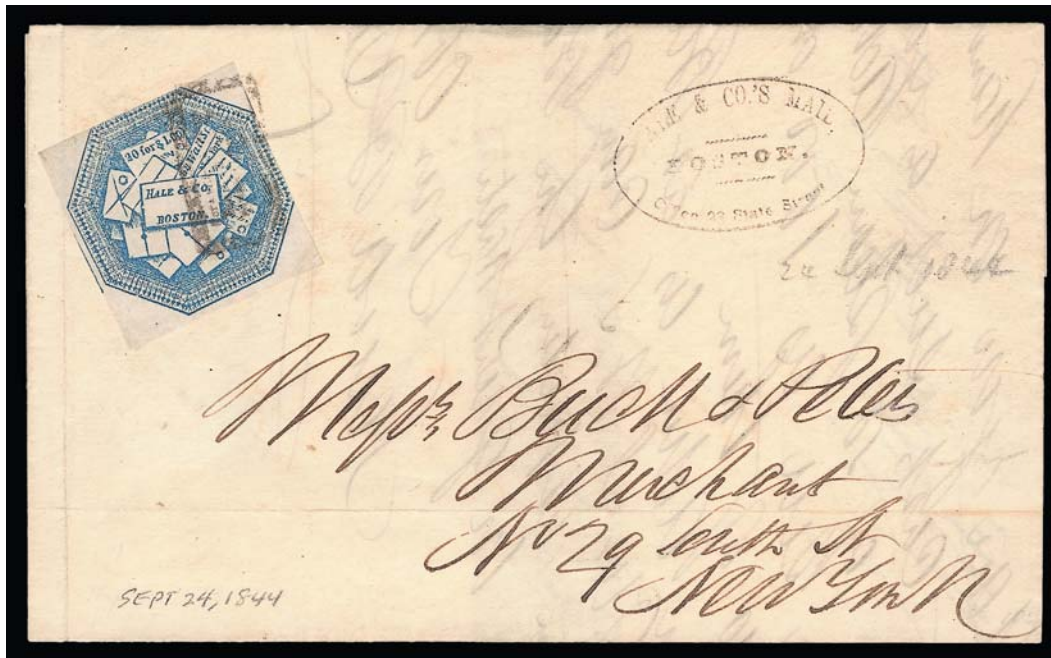 20 for $1.00
HALE & CO.
BOSTON.
HALE & CO.'S MAIL,
BOSTON.
Office 23 State Street
24 Sept 1844
Messrs Buck & Peters
Merchant
No 29 South St
New York
SEPT 24, 1844